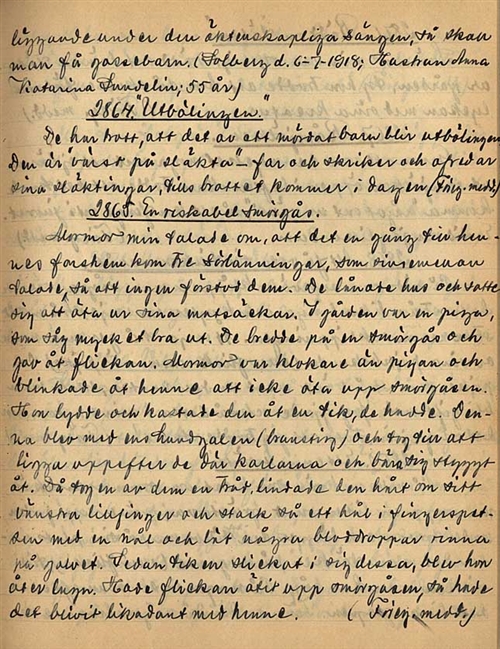 liggande under den äktenskapliga sängen, så skall
man få gossebarn. (Solberg d. 6-7-1918; Hustrun Anna
Katarina Sundelin; 55 år)
2864. "Utbölingen."
De har trott, att det av ett mördat barn blir utbölingen
Den är värst på släkta" - far och skriker och
sina släktingar, tills brottet kommer i dagen (Föreg. medd.)
2865. En riskabel smörgås.
Mormor min talade om, att det en gång till hen-
nes farshem kom tre sörlänningar, som
talade, så att ingen förstod dem. De lånade hus och satte
sig att äta av sina matsäckar. I gården var en piga,
som såg mycket bra ut. De bredde på en smörgås och
gav åt flickan. Mormor var klokare än pigan och
blinkade åt henne att icke äta upp smörgåsen.
Hon lydde och kastade den åt en tik, de hade. Den-
na blev med ens hundgalen (brunstig) och tog till att
ligga uppefter de där karlarna och bära sig styggt
åt. Då tog en av dem en tråd, lindade den hårt om sitt
vänstra lillfinger och stack så ett hål i fingerspet-
sen med en nål och lät några bloddroppar rinna
på golvet. Sedan tiken slickat i sig dessa, blev hon
åter lugn. Hade flickan ätit upp smörgåsen, så hade
det blivit likadant med henne. (Föreg. medd.)